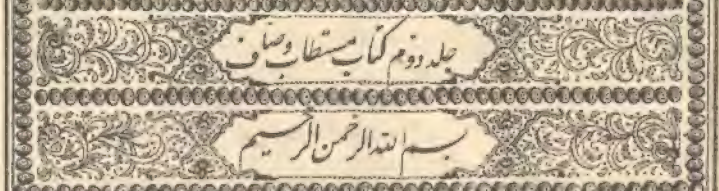 جلد دوم کتاب مستطاب وصاف
بسم الله الرحمن الرحیم